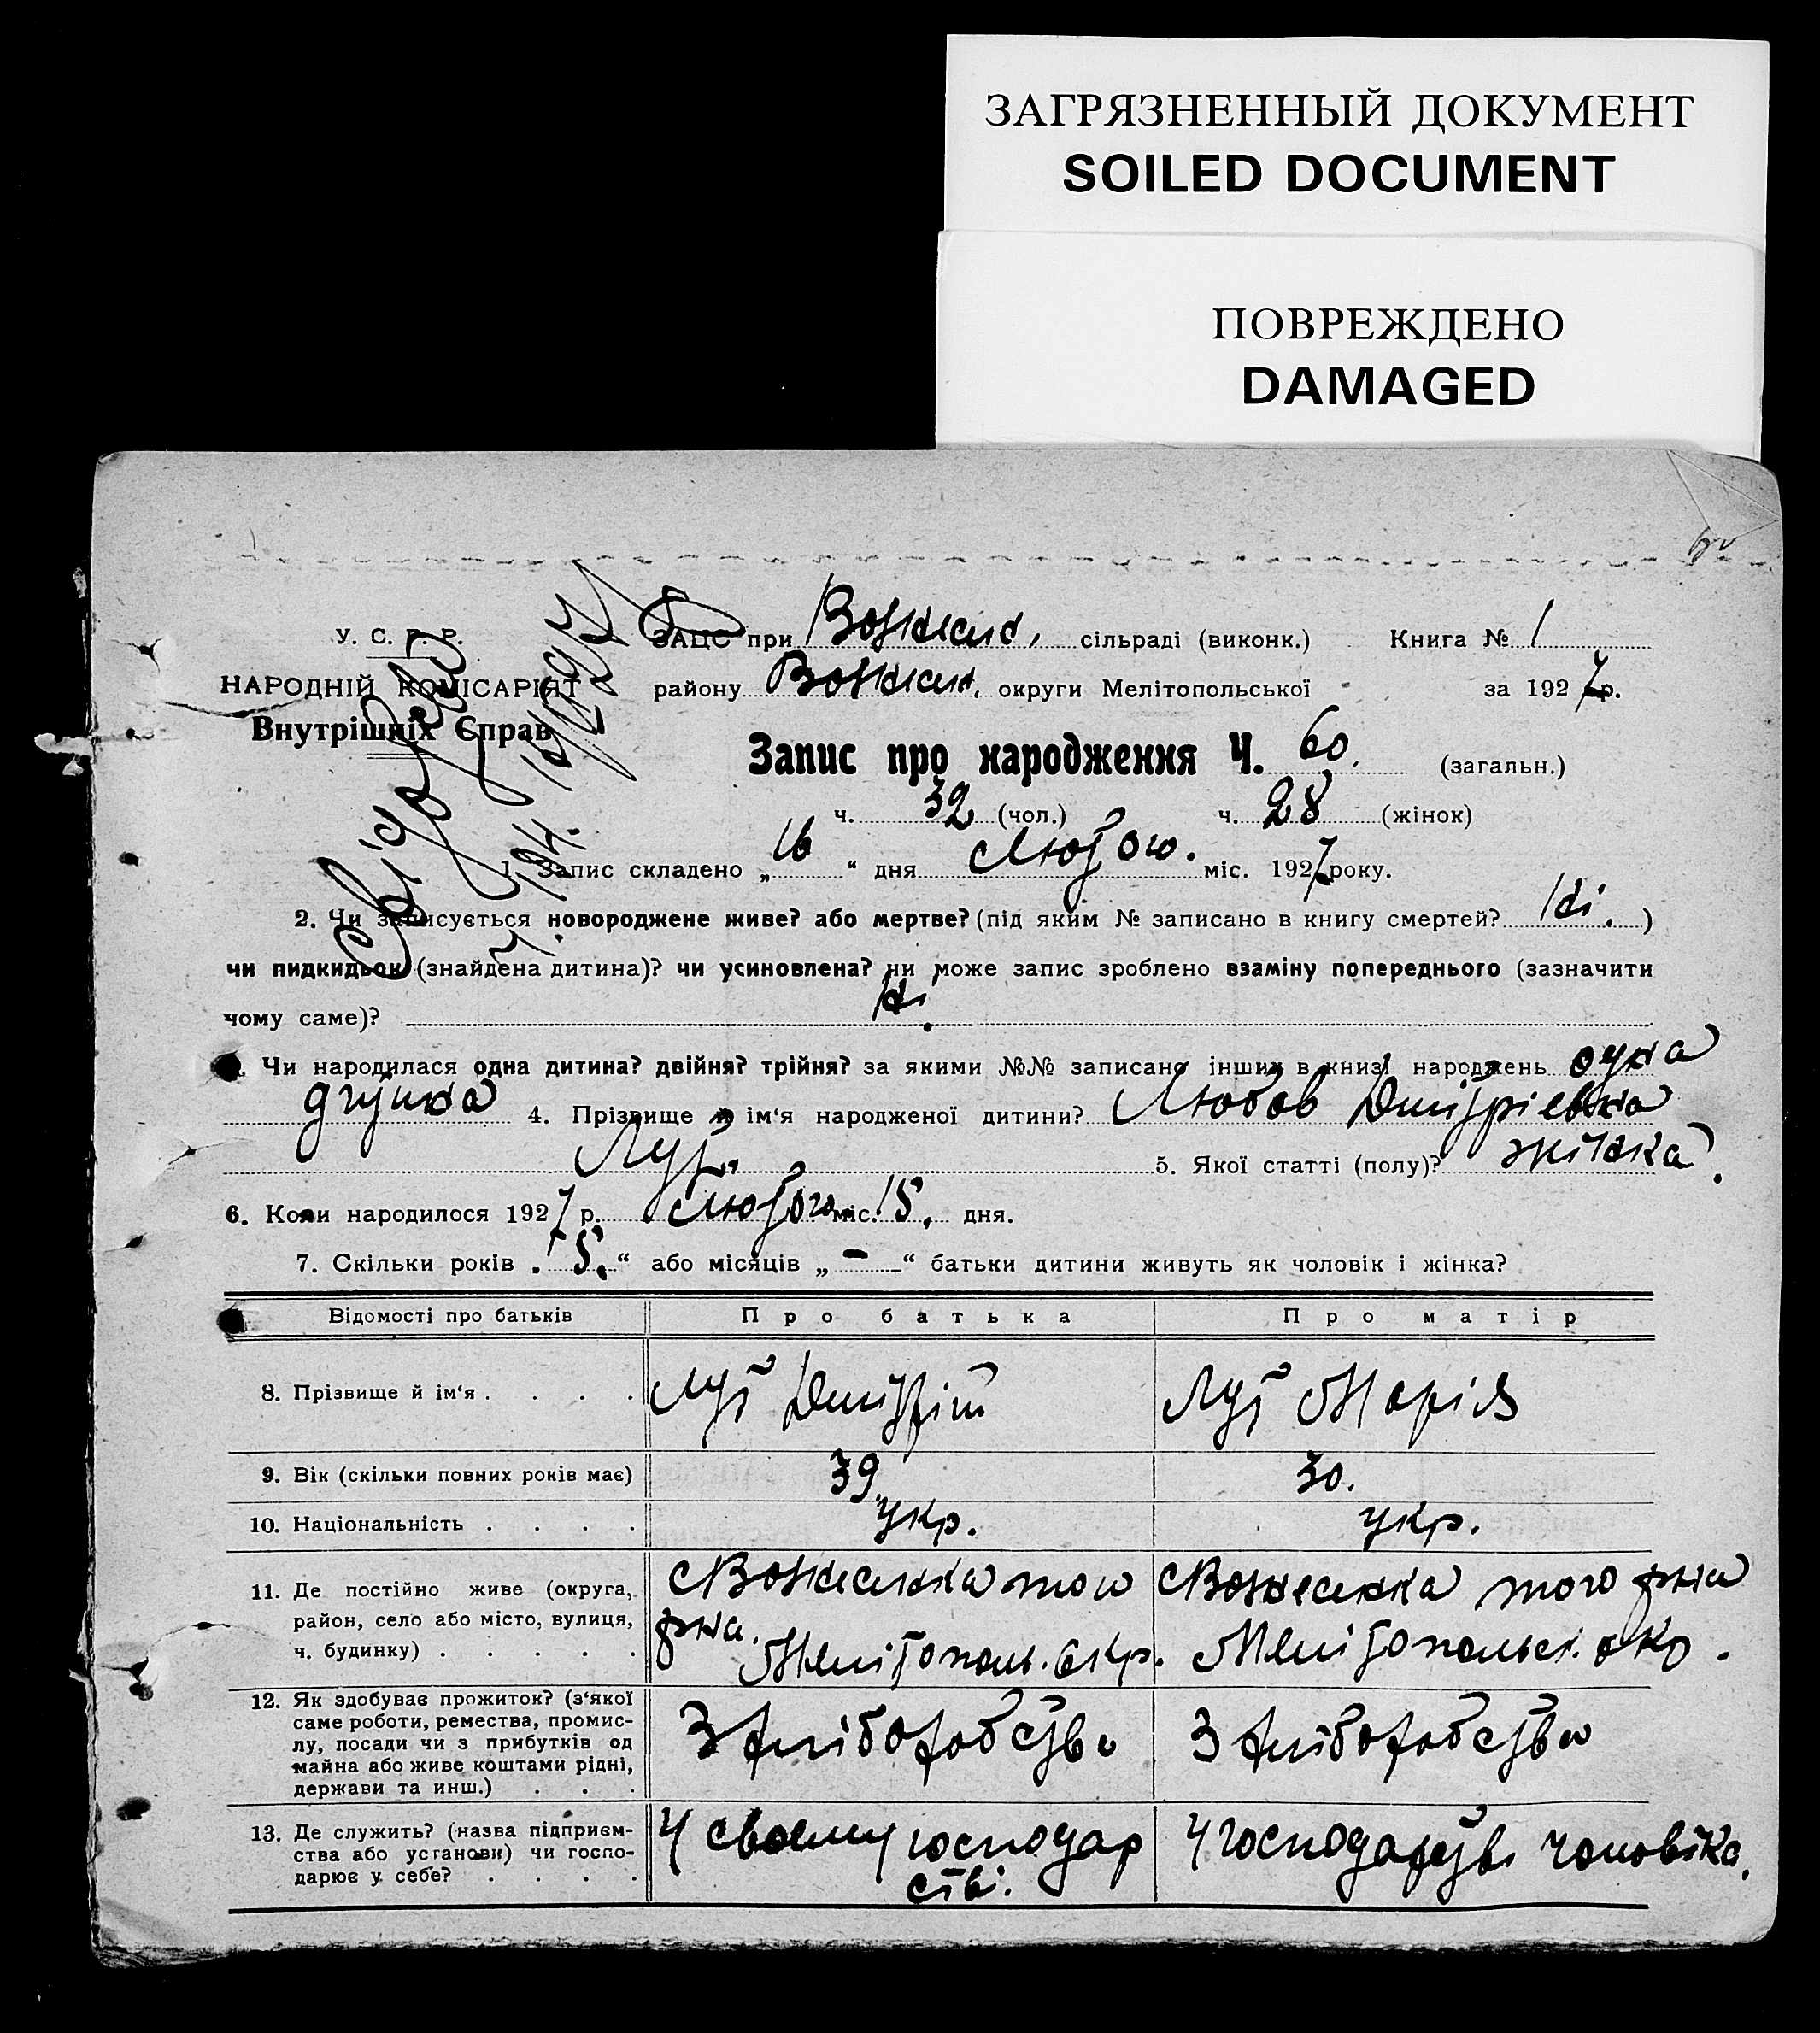 ЗАГРЯЗНЕННЫЙ ДОКУМЕНТ
SOILED DOCUMENT
ПОВРЕЖДЕНО
DAMAGED
60
У. С. Р. Р.
НАРОДНІЙ КОМІСАРІЯТ
Внутрішніх Справ
ЗАЦС при Вознесен. сільраді (виконк.) Книга № 1
району Вознесен. округи Мелітопольської за 1927 р.
Запис про народження Ч. 60. (загальн.)
ч. 32 (чол.) ч. 28 (жінок)
1. Запис складено „ 16 “ дня Лютого. міс. 1927 року.
2. Чи записується новороджене живе? або мертве? (під яким № записано в книгу смертей? Ні. )
чи пидкидьок (знайдена дитина)? чи усиновлена? чи може запис зроблено взаміну попереднього (зазначити
чому саме)? Ні.
3. Чи народилася одна дитина? двійня? трійня? за якими №№ записано інших в книзі народжень одна
дитина 4. Прізвище й ім‘я народженої дитини? Любов Дмитріевна
Лут. 5. Якої статті (полу)? жінка.
6. Коли народилося 1927 р. Лютого міс. 15. дня.
7. Скільки років „ 5. “ або місяців „ – “ батьки дитини живуть як чоловік і жінка?
Відомості про батьків Про батька Про матір
8. Прізвище й ім‘я . . . . Лут Дмитрій Лут Марія
9. Вік (скільки повних років має) 39. 30.
10. Національність . . . . укр. укр.
11. Де постійно живе (округа, район, село або місто, вулиця, ч. будинку) . . . . . Вознесенка того рна. Мелітополь. окр. Вознесенка того рна Мелітопольск. окр.
12. Як здобуває прожиток? (з‘якої саме роботи, ремества, промислу, посади чи з прибутків од майна або живе коштами рідні, держави та инш.) . . . З хліборобства З хліборобства
13. Де служить? (назва підприємства або установи) чи господарює у себе? . . . . У своему господарстві. У господарстві чоловіка.